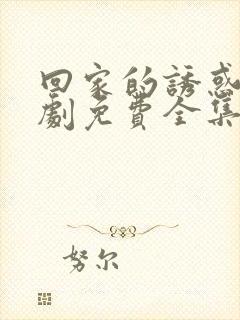 回家的誘惑
劇免費全集
努尔